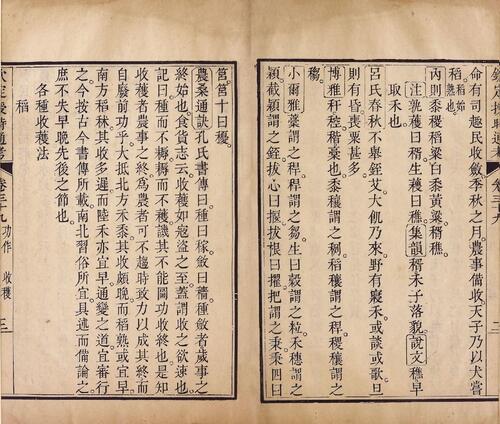 命有司趣民收斂季秋之月農事備收天子乃以犬嘗
稻稻始熟也
內則黍稷稻粱白黍黃粱稰穛
注孰穫曰稰生穫曰穛集韻稰禾子落貌說文穛早
取禾也
呂氏春秋不舉銍艾大飢乃來野有寢禾或談或歌旦
則有昏喪粟甚多
博雅稭稾也黍穰謂之稻穰謂之稈稷穰謂之
小爾雅藁謂之稈稈謂之芻生曰穀謂之粒禾穗謂之
穎截穎謂之銍拔心曰揠拔根曰擢把謂之秉秉四曰
筥筥十曰稯
農桑通訣孔氏書傳曰種曰稼斂曰穡種斂者歲事之
終始也食貨志云收穫如寇盜之至蓋謂收之欲速也
記曰種而不耨耨而不穫譏其不能圖功收終也是知
收穫者農事之終為農者可不趨時致力以成其終而
自廢前功乎大抵北方禾黍其收頗晚而稻熟或宜早
南方稻秫其收多遲而陸禾亦宜早通變之道宜審行
之今按古今書傳所載南北習俗所宜具述而備論之
庶不失早晚先後之節也
各種收穫法
稻
欽定授時通考 卷三十九 功作 收穫 三